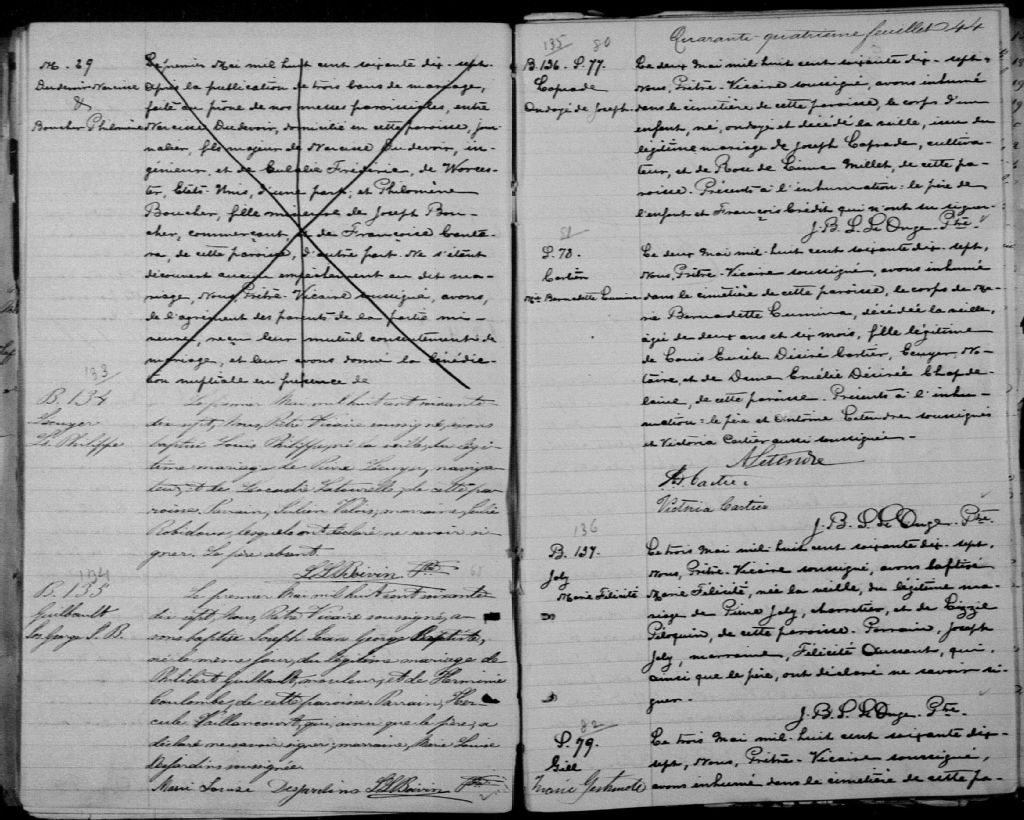 M - 29
Dudevoir Narcisse
&
Boucher Philomène
Le premier Mai mil huit cent soixante dix-sept,
après la publication de trois bans de mariage,
faite au prône de nos messes paroissiales, entre
Narcisse Dudevoir, domicilié en cette paroisse, jour-
nalier, fils majeur de Narcisse Dudevoir, in-
génieur, et de Eulalie, de Worces-
ter, Etats-Unis, d'une part; et Philomène
Boucher, fille mineure de Joseph Bou-
cher, commerçant, et de Françoise
de cette paroisse, d'autre part. Ne s'étant
découvert aucun empêchement au dit ma-
riage, Nous, Prêtre-Vicaire soussigné, avons,
de l'agrément des parents de la partie mi-
neure, reçu leur mutuel consentement de
mariage, et leur avons donné la bénédic-
tion nuptiale en présence de
133
B. 134
Ls Philippe
Le premier Mai mil huit cent soixante
dix sept, nous, Prêtre Vicaire soussigné, avons
baptisé Louis Philippe, né la veille, du légi-
time mariage de Pierre, naviga-
teur, et de Léocadie Latourelle, de cette pa-
roisse. Parrain, Julien Valois, marraine, Julie
Robidoux, lesquels ont déclaré ne savoir si-
gner. Le père absent.
Boivin Ptre
134
B. 135
Guilbault
Jos George J. B.
Le premier Mai mil huit cent soixante
dix sept, nous, Prêtre Vicaire soussigné, a-
vons baptisé Joseph Jean George Baptiste,
né le même jour, du légitime mariage de
Philibert Guilbault, mouleur, et de Herminie
Coulombe, de cette paroisse. Parrain, Her-
cule Vaillancourt, qui, ainsi que le père, a
déclaré ne savoir signer; marraine, Marie Louise
Desjardins soussignée.
Marie Louise Desjardins Boivin Ptre
Quarante-quatrième feuillet 44
135 80
B. 136 - S. 77.
Laprade
Ondoyé de Joseph
Le deux Mai mil huit cent soixante dix-sept,
Nous, Prêtre-Vicaire soussigné, avons inhumé
dans le cimetière de cette paroisse, le corps d'un
enfant, né, ondoyé et décédé la veille, issu du
légitime mariage de Joseph Laprade, cultiva-
teur, et de Rose de Lima Millet, de cette pa-
roisse. Présents à l'inhumation: le père de
l'enfant et François Crédit qui n'ont su signer.
J. B. L. LeDuge Ptre
81
S. 78.
Cartier
Mie Bernadette Cumina
Le deux Mai mil huit cent soixante dix-sept,
Nous, Prêtre-Vicaire soussigné, avons inhumé
dans le cimetière de cette paroisse, le corps de Ma-
rie Bernadette Cumina, décédée la veille,
âgée de deux ans et six mois, fille légitime
de Louis Eusèbe Désiré Cartier, Ecuyer, No-
taire, et de Dame Emélie Désirée Chapde-
laine, de cette paroisse. Présents à l'inhu-
mation: le père et Antoine Letendre soussignés
et Victoria Cartier aussi soussignée.
A Letendre
Cartier
Victoria Cartier
J. B. L. LeDuge Ptre
136
B. 137.
Joly
Marie Félicité
Le trois Mai mil huit cent soixante dix-sept,
Nous, Prêtre-Vicaire soussigné, avons baptisé
Marie Félicité, née la veille, du légitime ma-
riage de Pierre Joly, charretier, et de Lizzie
Péloquin, de cette paroisse. Parrain, Joseph
Joly, marraine, Félicité Aussant, qui,
ainsi que le père, ont déclaré ne savoir si-
gner.
J. B. L. LeDuge Ptre
82
S. 79.
Gill
Marie
Le trois Mai mil huit cent soixante dix-
sept, Nous, Prêtre-Vicaire soussigné,
avons inhumé dans le cimetière de cette pa-